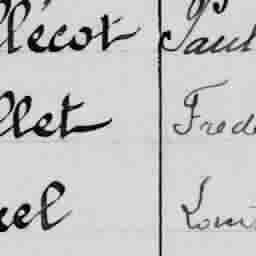 llécot Paul
llet Frede
xel Louis